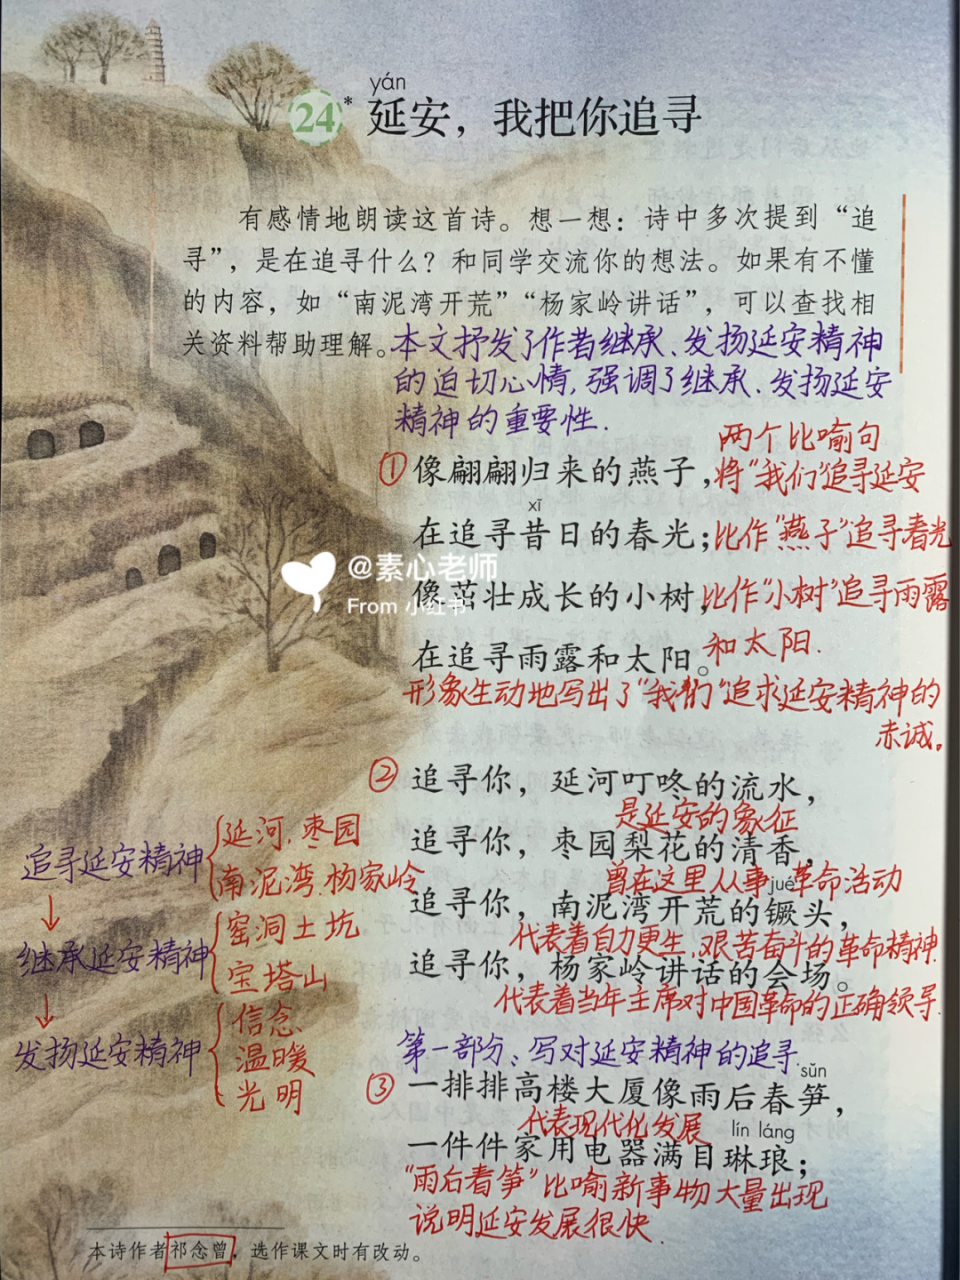 yán
24* 延安，我把你追寻
有感情地朗读这首诗。想一想：诗中多次提到“追
寻”，是在追寻什么？和同学交流你的想法。如果有不懂
的内容，如“南泥湾开荒”“杨家岭讲话”，可以查找相
关资料帮助理解。
本文抒发了作者继承、发扬延安精神
的迫切心情，强调了继承、发扬延安
精神的重要性.
两个比喻句
①像翩翩归来的燕子，
将“我们”追寻延安
xī
在追寻昔日的春光；
比作“燕子”追寻春光
@素心老师
From 小红书
像茁壮成长的小树，
比作“小树”追寻雨露
在追寻雨露和太阳。
和太阳.
形象生动地写出了“我们”追求延安精神的
赤诚。
②追寻你，延河叮咚的流水，
是延安的象征
追寻你，枣园梨花的清香，
曾在这里从事革命活动
jué
追寻你，南泥湾开荒的镢头，
代表着自力更生、艰苦奋斗的革命精神.
追寻你，杨家岭讲话的会场。
代表着当年主席对中国革命的正确领导.
第一部分：写对延安精神的追寻.
追寻延安精神
延河、枣园
南泥湾、杨家岭
↓
继承延安精神
窑洞土坑
宝塔山
↓
发扬延安精神
信念
温暖
光明
sǔn
③一排排高楼大厦像雨后春笋，
代表现代化发展
lín láng
一件件家用电器满目琳琅；
“雨后春笋”比喻新事物大量出现
说明延安发展很快.
本诗作者祁念曾，选作课文时有改动。